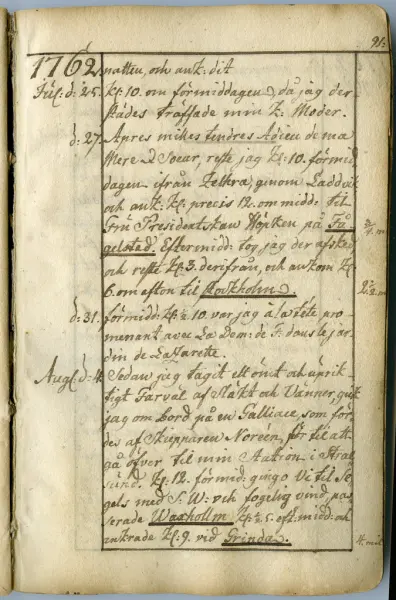 91:
1762. natten, och ank: dit
Jul: d: 25. kl: 10. om förmiddagen, då jag der-
städes träffade min K: Moder.
d: 27. Apres milles tendres Adieu de ma
Mere & Soeur, reste jag kl: 10. förmid-
dagen ifrån genom Laddvik
och ank: kl: precis 12. om midd: til
Fru Presidentskan Höpken på Få-
gelsted. Eftermidd: tog jag der afsked
och reste kl: 3. derifrån, och ankom kl:
6. om efton til Stockholm.
d: 31. förmidd: kl: ½ 10. var jag à la tête pro-
menant avec La Dem: de F: dans le jar-
din de
Aug: d: 4. Sedan jag tagit ett ömt och uprik-
tigt Farväl af Släkt och Vänner, gick
jag om Bord på en Galliace, som för-
des af Skepparen Noreén, för til att
gå öfver til min Station i Stral-
sund. Kl: 12. förmid: gingo Vi til Se-
gels med S. W: och fogelig vind, pas-
serade Waxhollm kl: ½ 5. eft: midd: och
ankrade kl: 9. vid Grinda.
4. mil